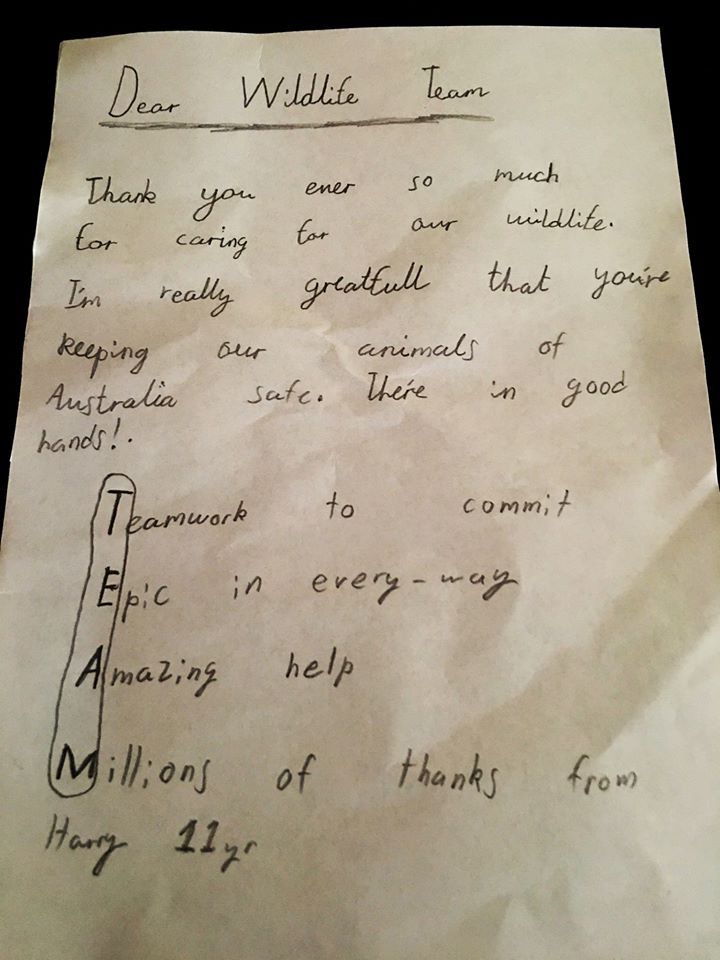 Dear Wildlife Team
Thank you ever so much
for caring for our wildlife.
I'm really greatfull that you're
keeping our animals of
Australia safe. There in good
hands!.
Teamwork to commit
Epic in every-way
Amazing help
Millions of thanks from
Harry 11yr